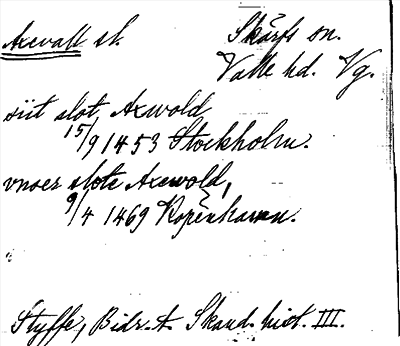 Axevall sl. Skärfs sn.
Valle hd. Vg.
siit slot Axwold
15/9 1453 Stockholm.
vnoer slote Axewold,
9/4 1469 Kopenhavn.
Styffe, Bidr. t. Skand. hist. III.